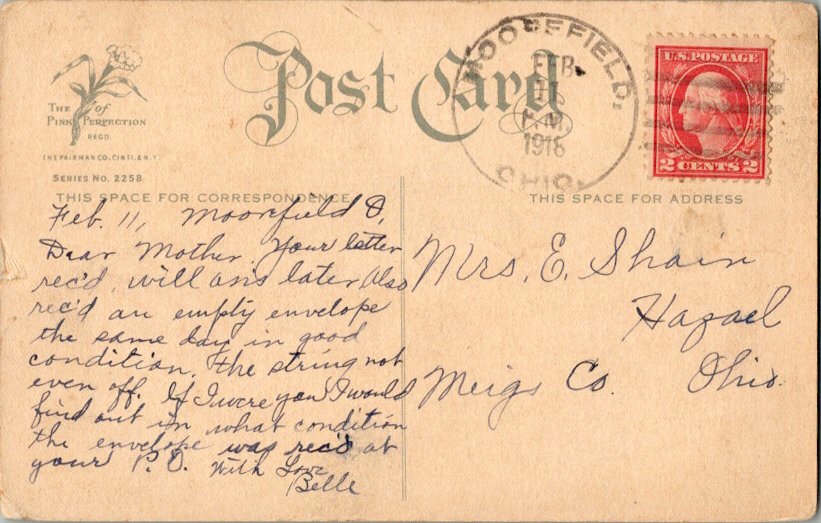 Post Card
The of
Pink Perfection
REG'D
THE FAIRMAN CO. CIN'TI. & N.Y.
SERIES No. 2258
MOOREFIELD,
FEB
11
1918
OHIO
U.S. POSTAGE
2 CENTS 2
THIS SPACE FOR CORRESPONDENCE
THIS SPACE FOR ADDRESS
Feb. 11, Moorefield O,
Dear Mother. Your letter
rec'd, will ans later. Also
rec'd an empty envelope
the same day in good
condition. the string not
even off. If I were you I would
find out in what condition
the envelope was rec'd at
your P.O. With Love
Belle
Mrs. E. Shain
Hazael
Meigs Co. Ohio.